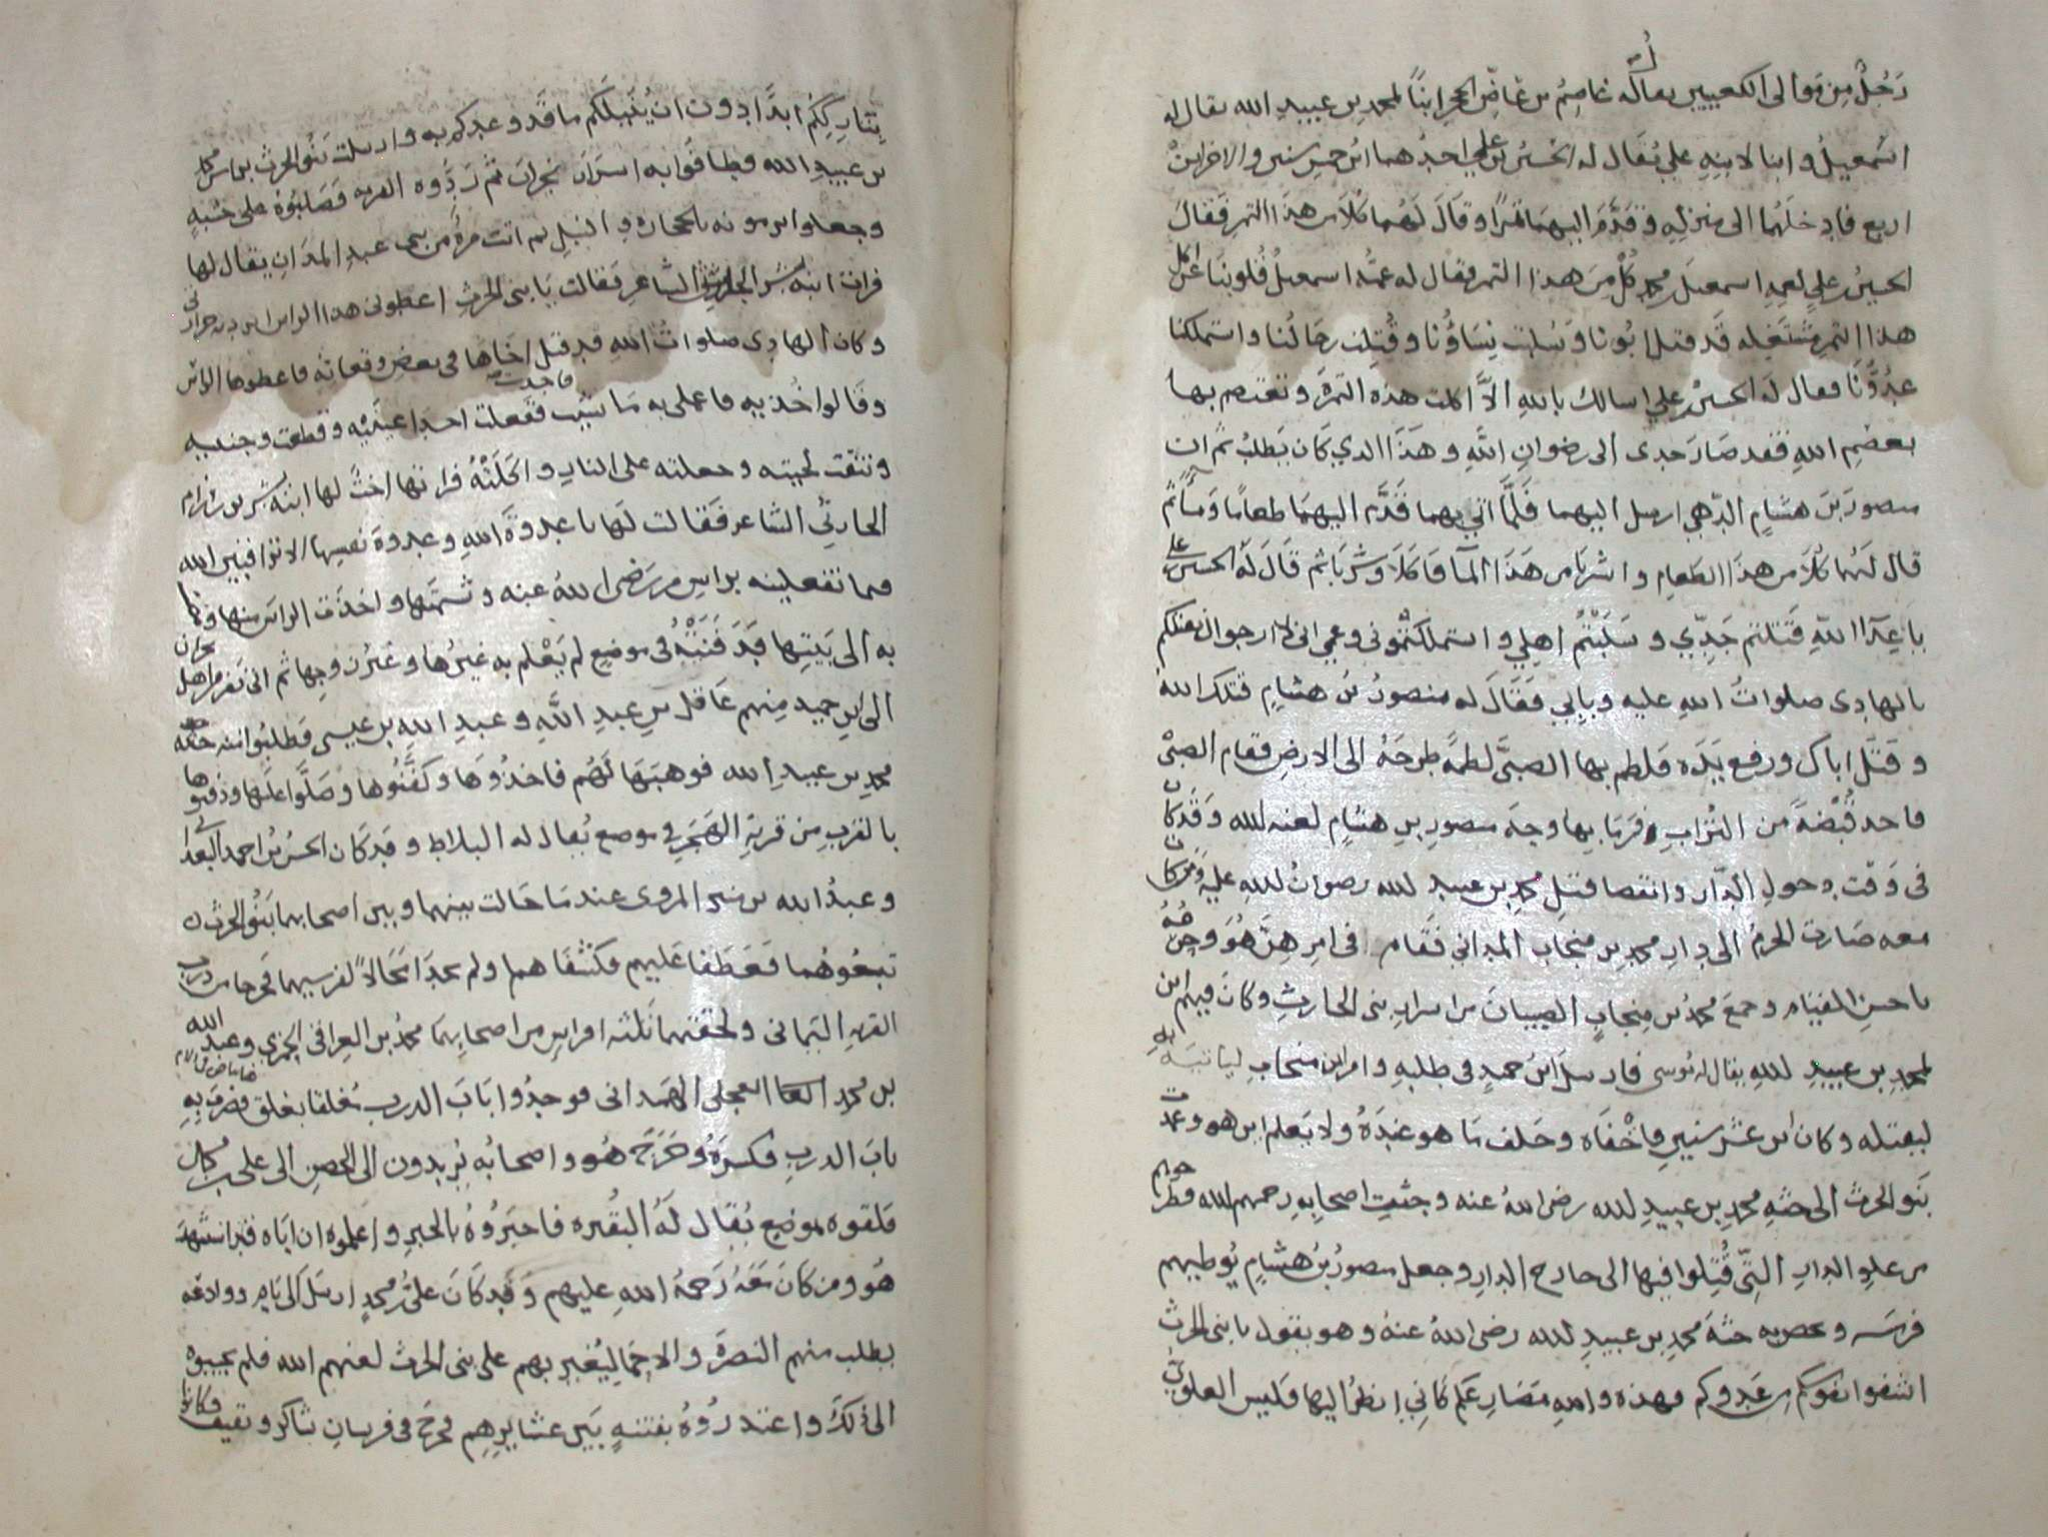 رَجُلٌ مِن مَوالى الكعبيين يقال له عاصِمُ بن عَاضِ الحجر ابنًا لمحمد بن عبيدِ الله يقال له
اسْمعيلُ وابنا لابنِهِ علي يُقَال له الحسنُ بن علي احدُهما ابن خمس سنين والاخر ابن
اربع فادخلَهُما الى منزلِهِ وقَدَّمَ اليهما تمرًا وقَالَ لَهُما كُلَا من هذا التمر فقالَ
الحسنُ بن علي لعمهِ اسمعيل بن محمد كُلْ مِن هذا التمر فقال له عمّه اسمعيلُ قُلوبنا عن اكل
هذا التمر مشتغِله قَد قتل ابُونا وسُلبت نِسَاؤُنا وقُتِلت رجالُنا واستملكنا
عدُوُّنَا فقال لَه الحسنُ بن علي اسالك باللهِ الَّا اكلت هذه التمرة وتعتصم بها
بعصَمِ اللهِ فقد صَارَ جدى الى رضوانِ اللَّهِ وهَذَا الذي كَان يَطلبُ ثم ان
منصورَ بنَ هشامٍ الدّهمي ارسل اليهما فَلمَّا اتي بهما قَدَّم اليهما طعامًا ومَاً ثم
قال لَهُما كُلَا من هذَا الطعامِ واشربا من هَذَا المآ فاكَلَا وشَرِبَا ثم قَالَ لَهُ الحسن بن علي
يا عِدَا اللّهِ قَتَلتم جَدِّي وسَلَبْتُم اهلِي واستملكتُمونى وعمي انى لارجوا ان يقتلكم
بالهادِى صلواتُ اللهِ عليه وبابِي فَقَالَ له منصورُ بنُ هشامٍ قتلك الله
وقتَل اباك ورفع يَدَه فلطم بها الصبىَّ لطمةً طرحَهُ الى الارضِ فقام الصبىُّ
فاخد قُبْضَةً من التُّرابِ فرَمَا بِها وجهَ منصورِ بنِ هشامٍ لعنه لله وقَد كان
فى وَقتِ دخولِ الدّار وانقضا قتلِ محمد بن عبيد لله رضوانُ لله عليه ومن كان
معه صَارت الحرمُ الى دارِ محمدِ بن منجاب المدانى فقام فى امرِهِنَّ هُوَ وحُرَمُهُ
باحسن القِيَام وجمعَ محمدُ بن منجابٍ الصبيانَ من اسرابِ بنى الحارثِ وكان فيهم ابن
لمحمدِ بن عبيدِ للهِ يقال له مُوسى فارسلَ ابنُ حميدٍ فى طلبهِ وامر ابن منجابٍ لياتيَه به
ليقتله وكان ابن عشر سنينِ فاخْفَاه وحلف مَا هو عِندَهُ ولا يَعلم اين هو وعمدت
بَنو الحرث الى جثهِ محمدِ بن عبيدِ لله رضى اللهُ عنه وجثثِ اصحابِهِ رحمهم الله فطرحوهم
من علوِ الدارِ التِّى قُتِلوا فيها الى خارج الدارِ وجعل منصورُ بنُ هشامٍ يُوطيهم
فرسَه وعصيه جثةَ محمد بن عبيدِ لله رضى اللهُ عنهُ وهو يقول يا بنى الحرث
اشفوا نفوسكم من عَدوكم فهذه والله مضَارِعكم كَانِي انظرُ اليها فليس العلوىّ
بِتَارِكِكُم ابدًا دون ان يُنيلَكم ما قد وعدكم به وارسلت بنُو الحرث براس محمد
بن عبيدِ الله فطافوا به اسرارَ نجران ثمّ رَدَّوه القريه فصَلبُوهُ على خشبهٍ
وجعلوا يرمونه بالحجاره والنبلِ ثم اتت مرةٌ من بنى عبدِ المدانِ يقال لها
فرات ابنة بشرٍ الحارثي الشاعرِ فقالت يَا بنى الحرث اعطونى هذا الراس
وكان الهادِى صلواتُ اللهِ قد قتل اخَاها فى بعض وقعاته فاعطوها الراس
وقَالوا خُذيه فاعملى به مَا شئتِ فاخدته ففعلت احدا عينَيْه وقطعت وجنتيه
ونتفت لحيته وجعلته على النارِ واكَلَتْهُ فراتها اختٌ لها ابنة بشر بن
الحارثي الشاعر فقالت لَها يا عدوةَ اللهِ وعدوةَ نفسِها الا تراقبين الله
فما تفعلينه براسِ من رَضى اللهُ عنه وشتمتها واخذَت الراسَ منها
به الى بَيتها فَدفَنَتْهُ فى موضعٍ لم يَعْلم به غيرُها وغيرُ زوجها ثم اتى نفر من اهل نجران
الى ابنِ حميد مِنهم عَاقل بن عبدِ اللَّهِ وعبدِ اللهِ بن عيسى فطلبُوا منه جثة
محمدِ بن عبيدِ الله فوهبَهَا لَهُم فاخذُوهَا وكفَّنُوها وصلَّوا علَيها ودفنوها
بالقرب مِن قريةِ الهَجَرِ فى موضع يُقال له البلاط وقد كَان الحسنُ بن احمد البغدا
وعبدُ الله بن المروى عند مَا حَالت بينهما وبين اصحابهما بَنُو الحرث
تبعُوهُما فعَطفا عَليهم فكشفَا هما ولم يجدا مجَالًا لفرسيهما فخرجا من درب
القريهِ اليَمانى ولحقتهما ثلثه افراسٍ من اصحابهما محمدُ بن العِراقى وعبد الله
بن محمد العجلى الهمدانى فوجدُوا بَابَ الدرب مُغلقا بغلق فضربَ بِهِ
بابَ الدرب فكسرَهُ وخرجَ هُو واصحابُه يُريدون الى الحِصنِ الى على بن محمد
فلقوه بموضعٍ يُقال لَهُ البقُره فاخبرُوُهُ بالخبرِ واعلموه ان ابَاه قد استشهدَ
هُو ومن كانَ معَهُ رَحمهُ اللهِ عليهم وقد كَانَ علىُّ بن محمدٍ ارسَلَ الى يامٍ ووادعه
يطلب منهم النصرةَ والاجمَا ليُغير بهم على بنى الحرث لعنهم الله فلم يجيبوه
الى ذلكَ واعتذرُوُهُ بفتنهٍ بَين عشايرِهِم فخرجَ فى فرسانِ شاكر وثقيف وكانوا